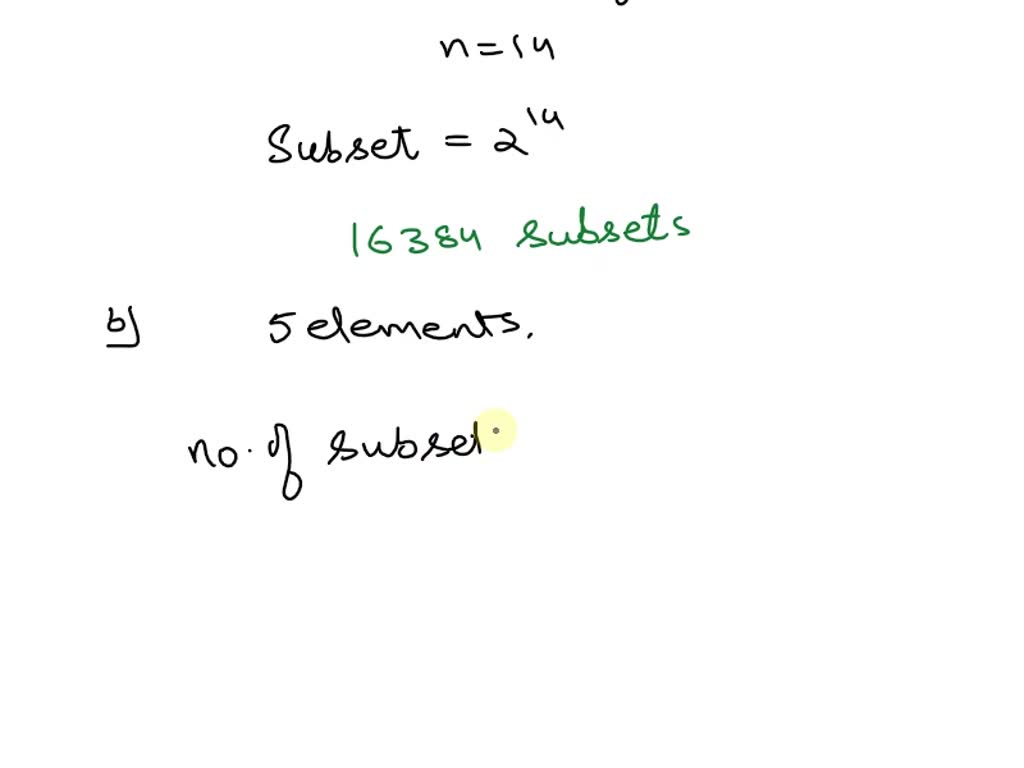 n=14
Subset = 2^14
16384 subsets
b) 5 elements.
no. of subset